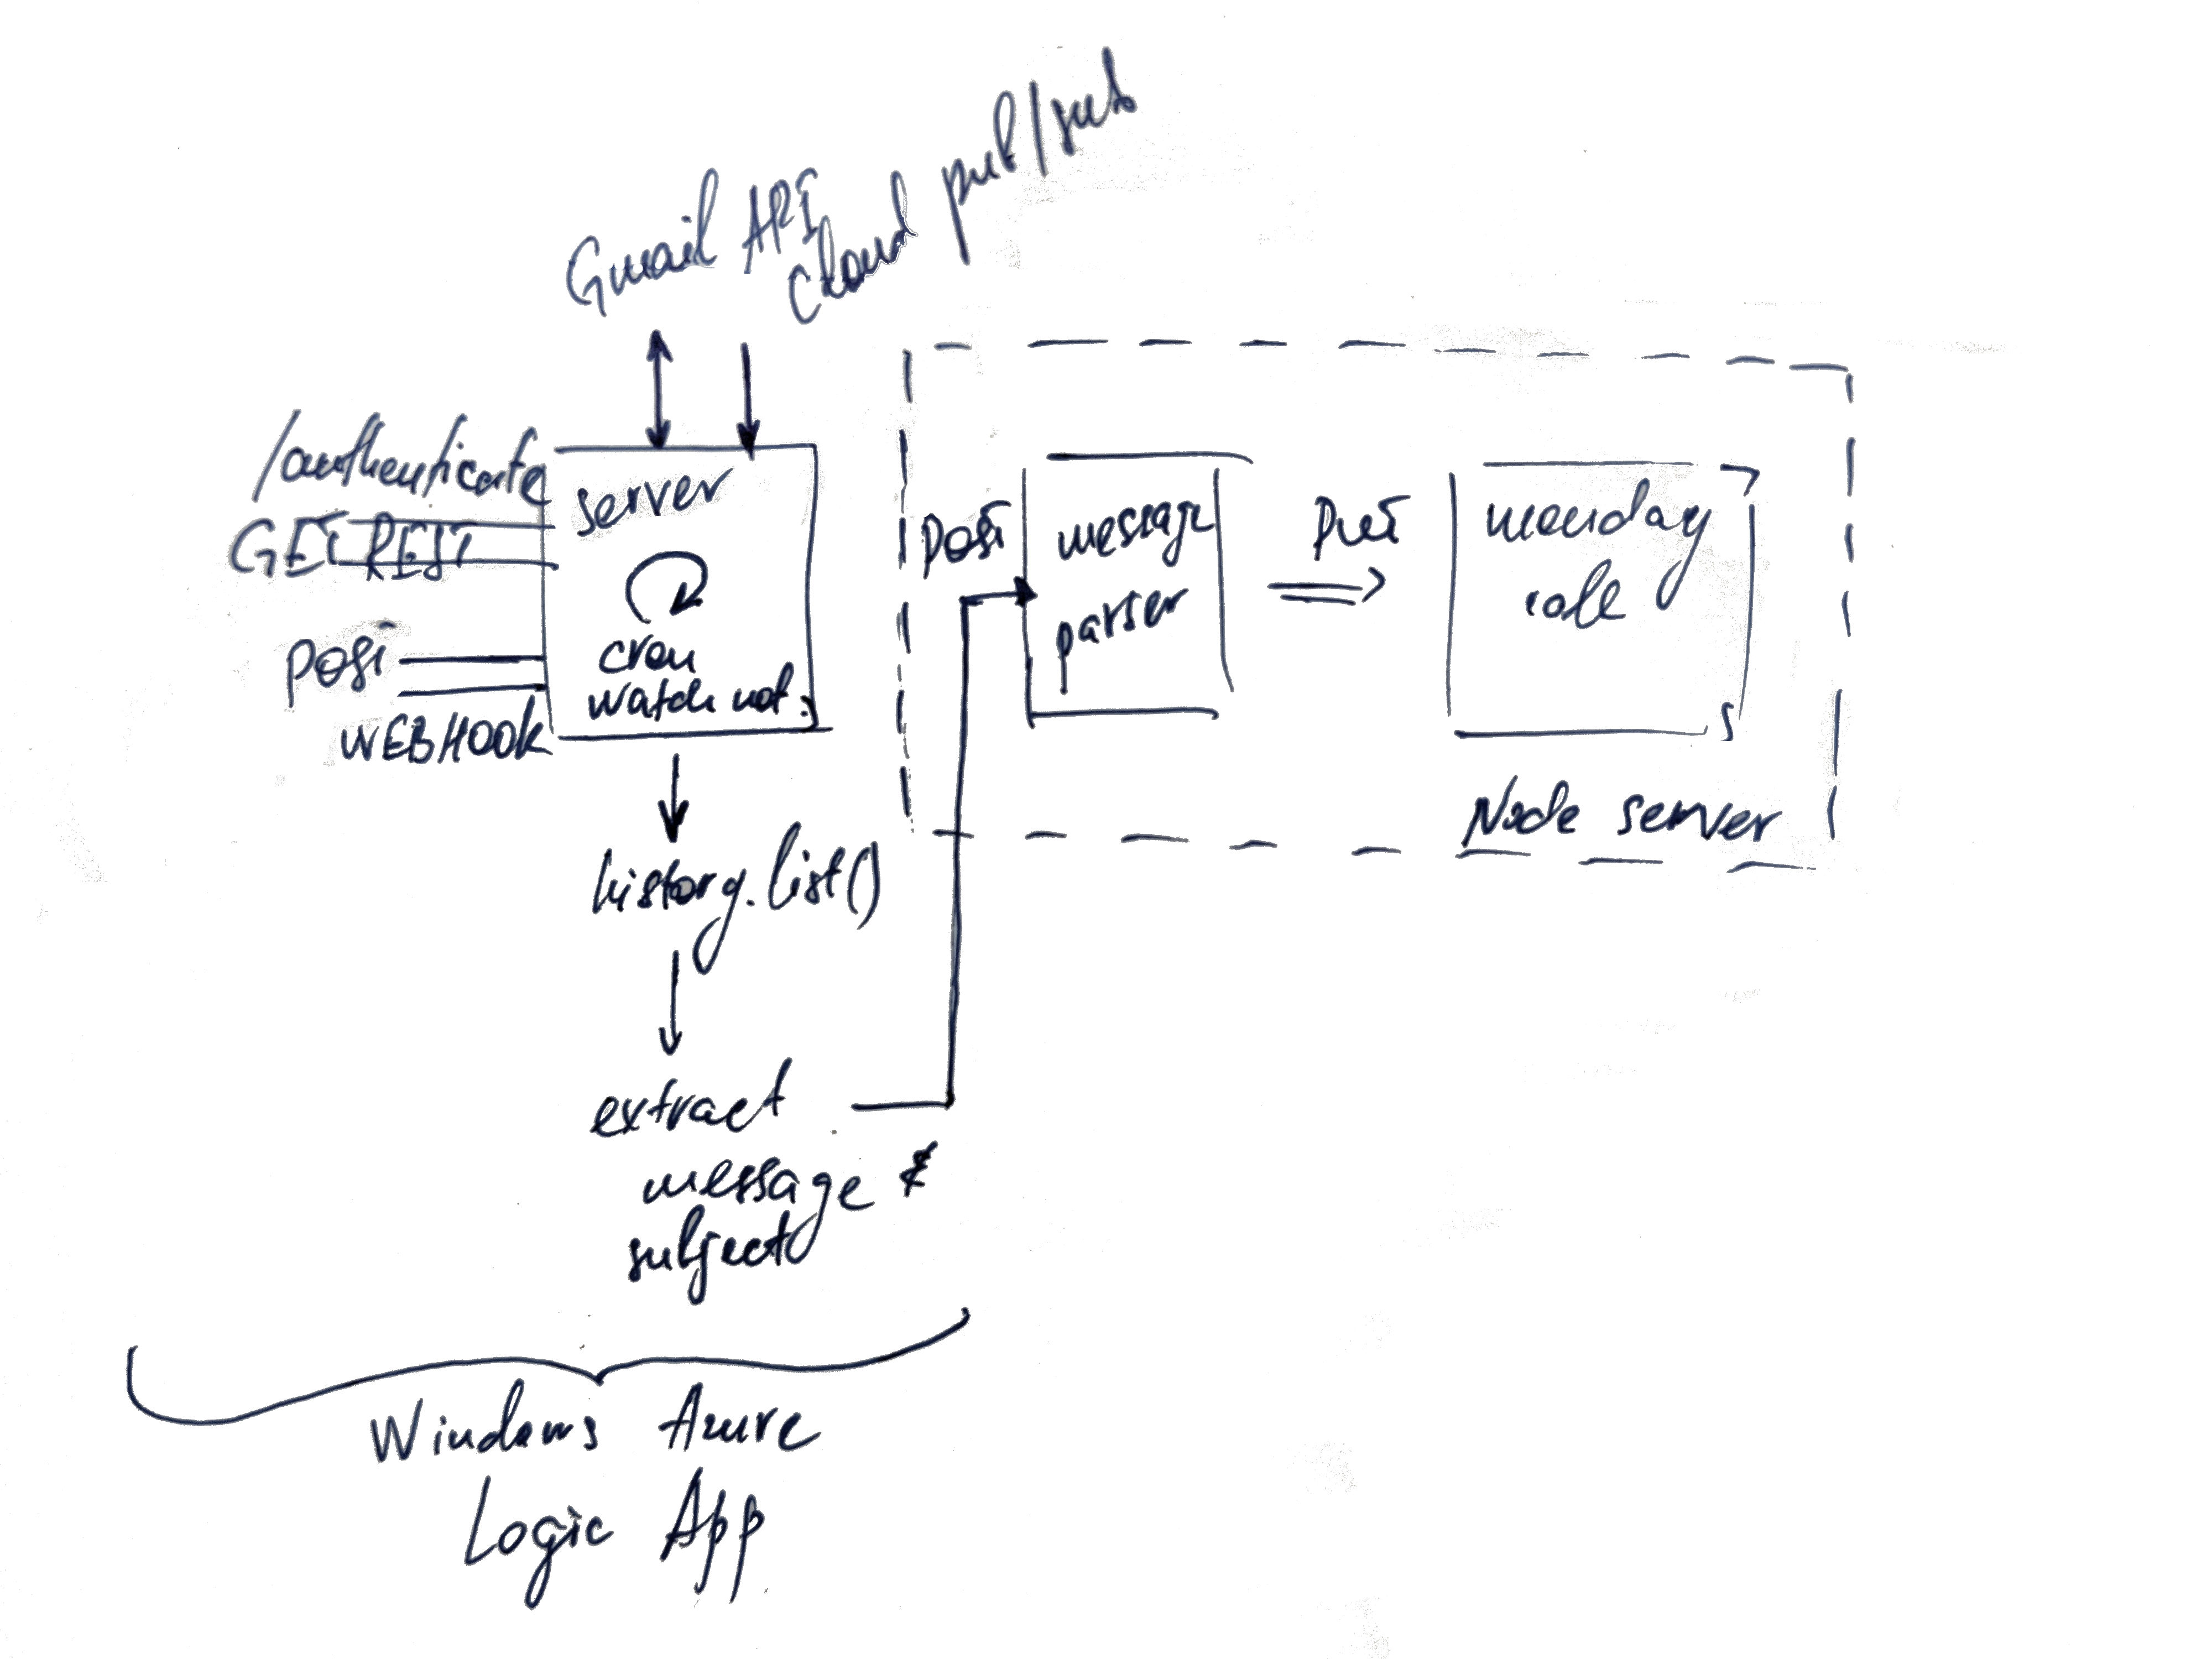 Gmail API
cloud pub/sub
/authenticate
GET REST
POST
WEBHOOK
server
cron
watch not.
history.list()
extract
message &
subject
Windows Azure
Logic App
POST
message
parser
PUT
monday
Node server